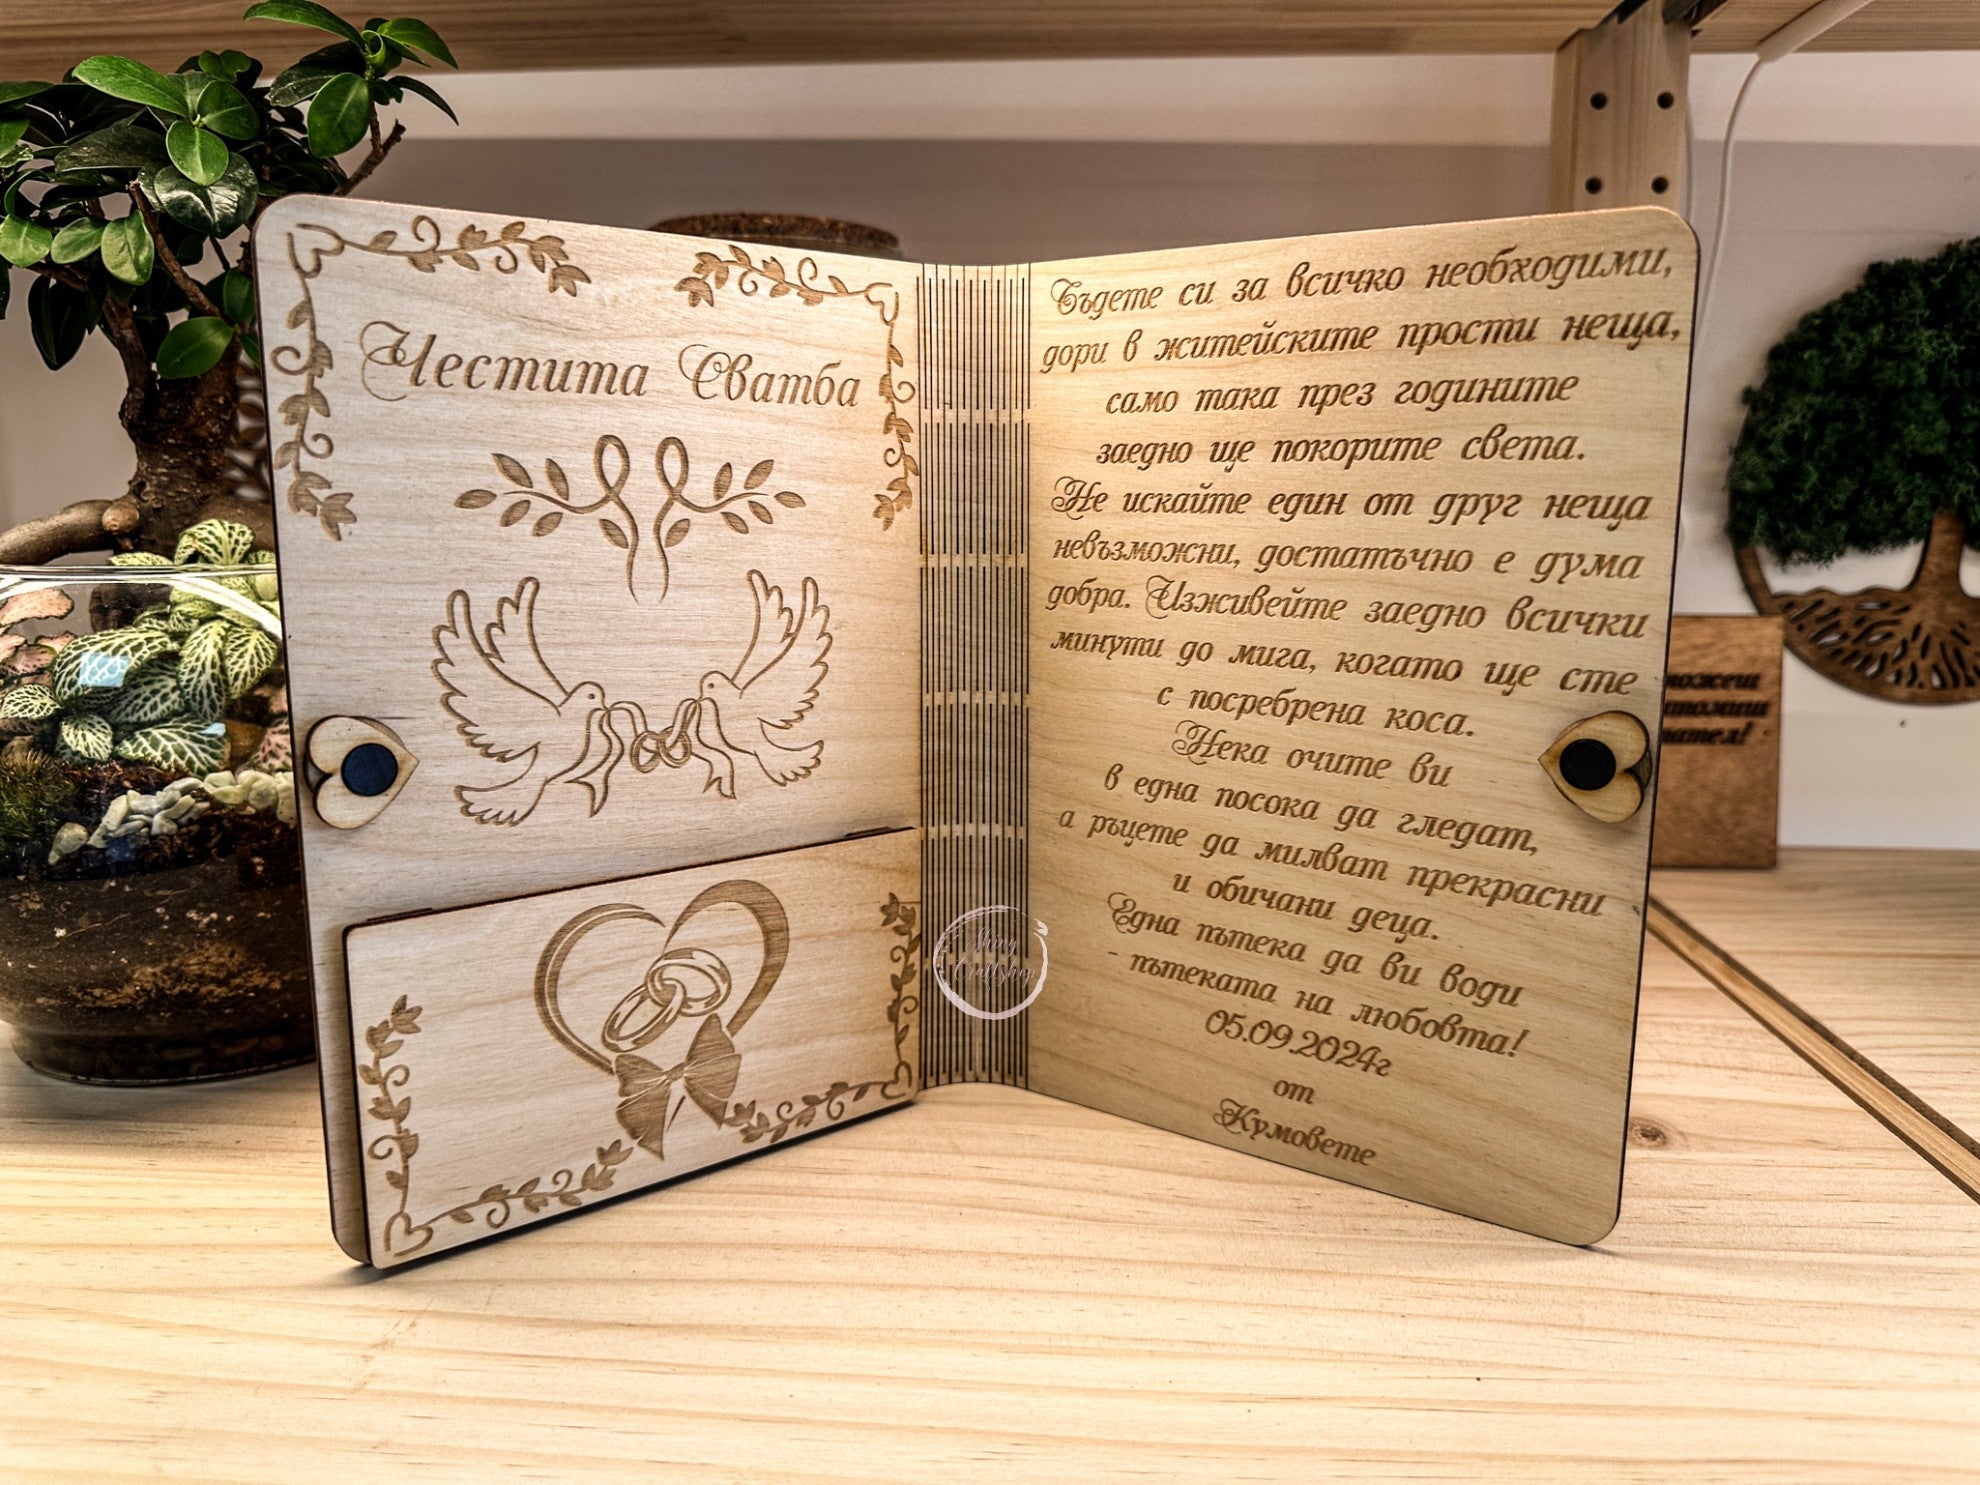 Честита Сватба
Бъдете си за всичко необходими,
дори в житейските прости неща,
само така през годините
заедно ще покорите света.
Не искайте един от друг неща
невъзможни, достатъчно е дума
добра. Изживейте заедно всички
минути до мига, когато ще сте
с посребрена коса.
Нека очите ви
в една посока да гледат,
а ръцете да милват прекрасни
и обичани деца.
Една пътека да ви води
- пътеката на любовта!
05.09.2024г
от
Кумовете
Shiny
Craftshop